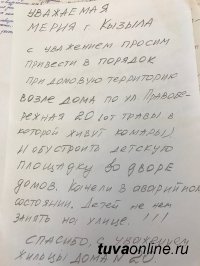 УВАЖАЕМАЯ
МЕРИЯ г. КЫЗЫЛА
с уважением просим
привести в порядок
придомовую территорию
возле дома по ул Правобе-
режная 20 (от травы в
которой живут комары)
и обустроить детскую
площадку во дворе
домов. Качели в аварийном
состоянии. Детей не чем
занять на улице. !!!
СПАСИБО, с уважением
жильцы дома № 20.
tuvaonline.ru